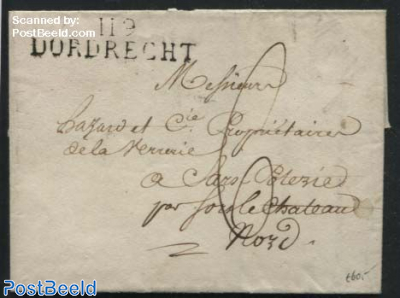 Scanned by:
PostBeeld.com
119
DORDRECHT
Messieurs
hazard et Cie Propriétaires
de la Verrerie
a Sars Poterie
par Solre le Chateau
Nord.
€60.-
PostBeeld